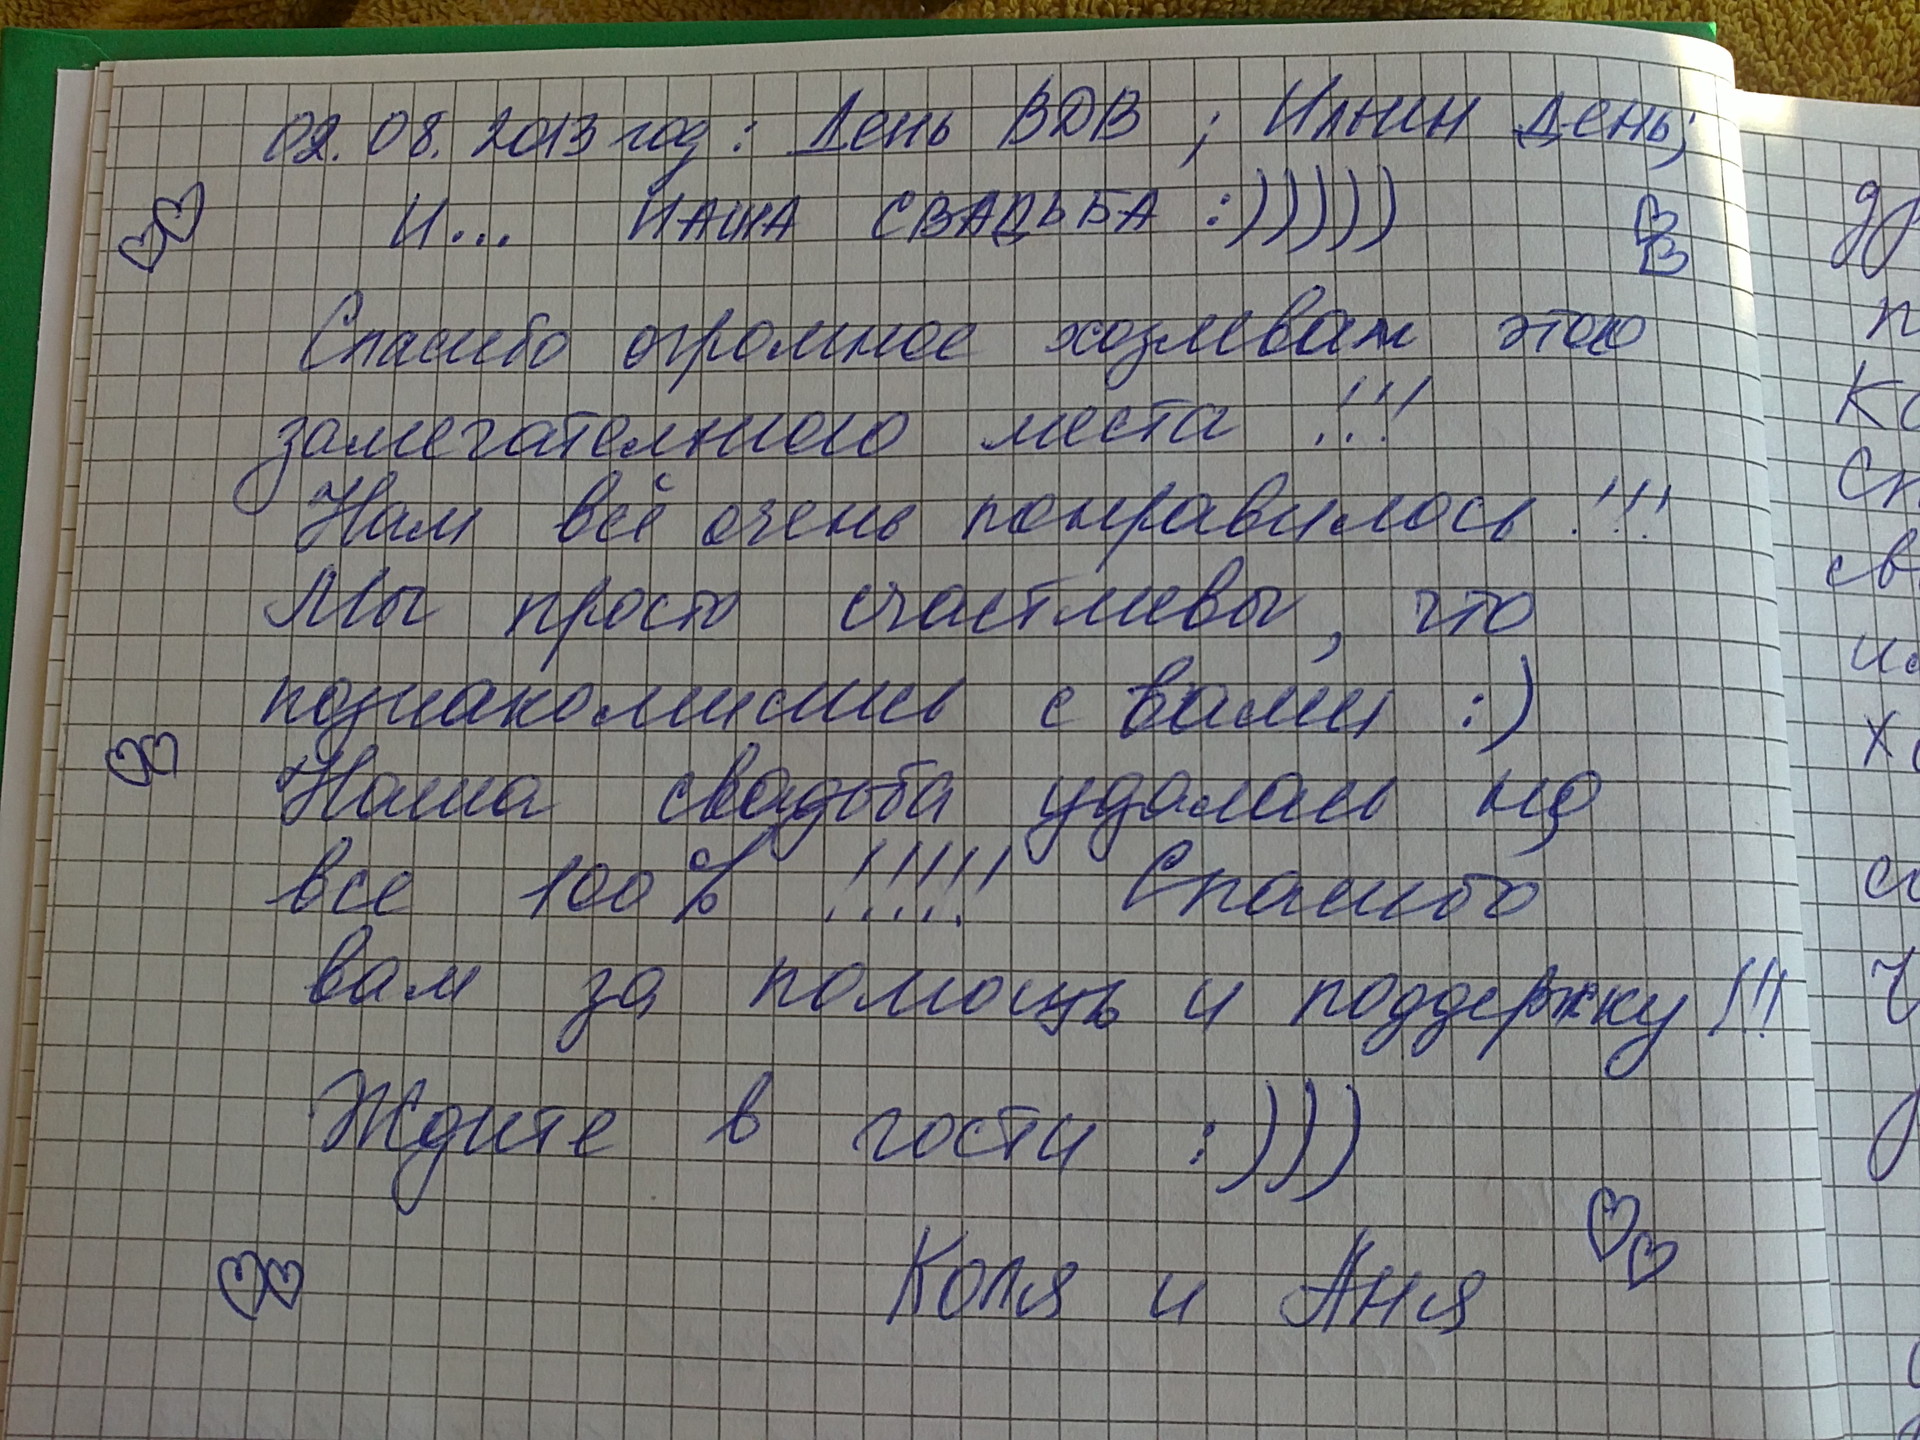 02.08.2013 год: День ВДВ; Ильин День;
И... НАША СВАДЬБА :)))))
Спасибо огромное хозяевам этого
замечательного места!!!
Нам всё очень понравилось!!!
Мы просто счастливы, что
познакомились с вами :)
Наша свадьба удалась на
все 100% !!!!! Спасибо
вам за помощь и поддержку!!!
Ждите в гости :)))
Коля и Аня